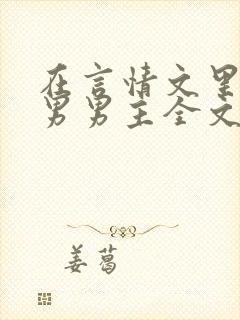 在言情文里
男男主全文
姜葛